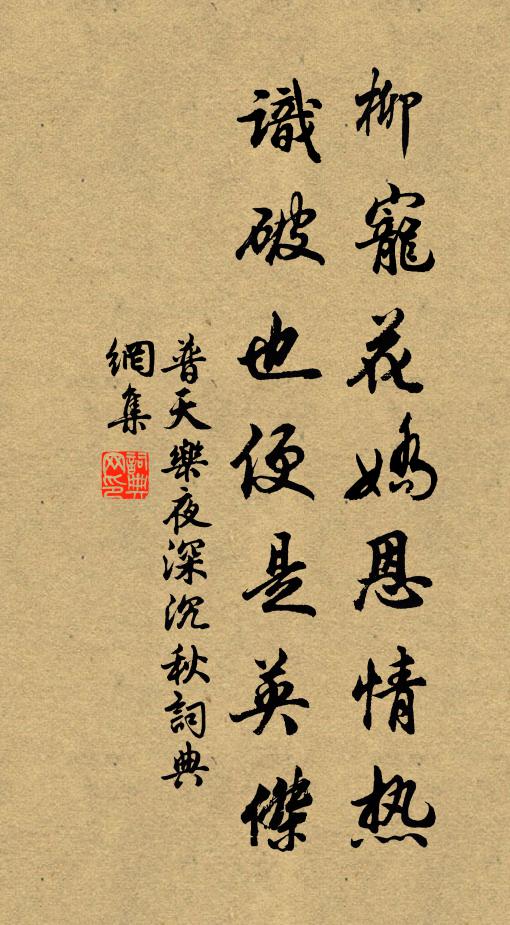 柳寵花嬌恩情热
識破也便是英傑
普天樂夜深沉秋詞典
網集
詞典网印